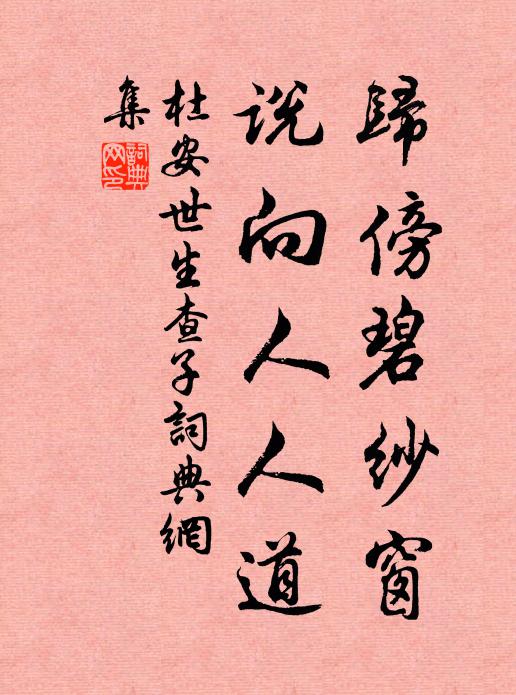 歸傍碧紗窗
說向人人道
杜安世生查子詞典網
集
詞典网印